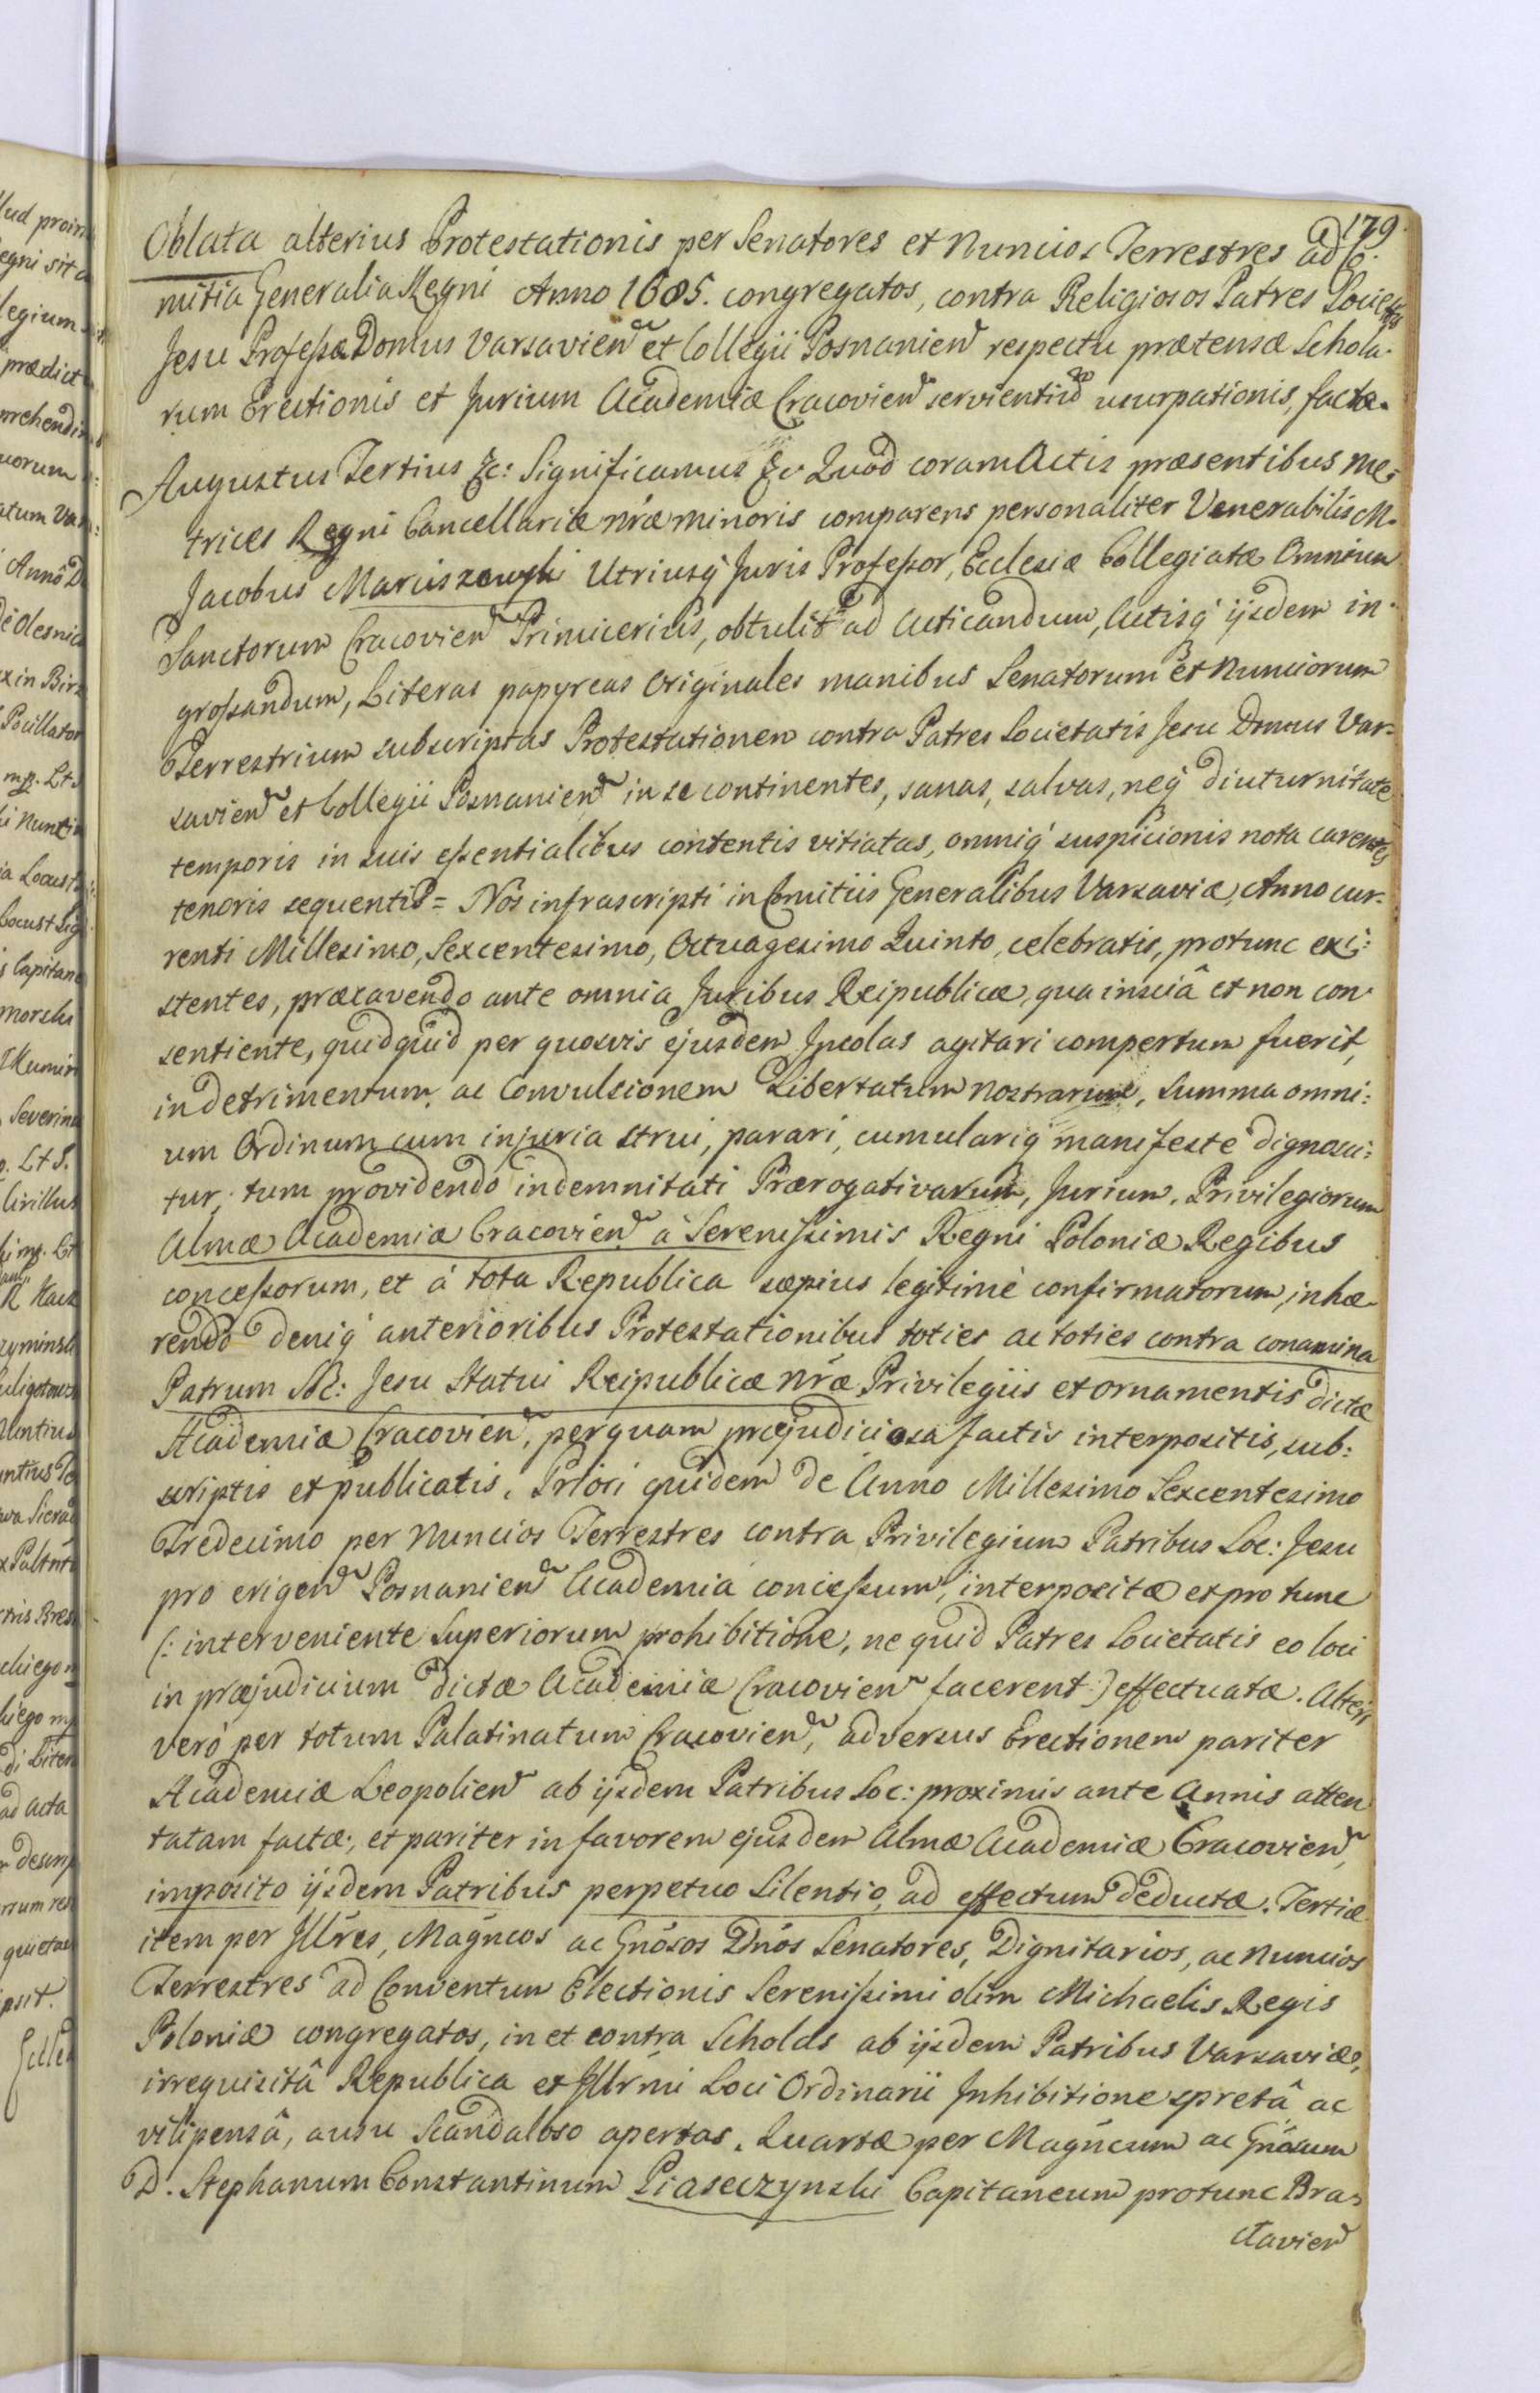 179.
Oblata alterius Protestationis per Senatores et Nuncios Terrestres ad Co-
mitia Generalia Regni Anno 1685. congregatos, contra Religiosos Patres Societis
Jesu Professæ Domus Varsavien et Collegii Posnanien respectu prætensæ Schola-
rum Erectionis et Jurium Academiæ Cracovien servientiu usurpationis, factæ.
Augustus Tertius &c: Significamus &c Quod coram Actis præsentibus Me-
trices Regni Cancellariæ nræ minoris comparens personaliter Venerabilis M.
Jacobus Marciszewski Utriusq Juris Professor, Ecclesiæ Collegiatæ Omnium
Sanctorum Cracovien Primicerius, obtulit ad Acticandum, Actisq ijsdem in-
grossandum, Literas papyreas Originales manibus Senatorum et Nunciorum
Terrestrium subscriptas Protestationem contra Patres Societatis Jesu Domus Var-
savien et Collegii Posnanien in se continentes, sanas, salvas, neq diuturnitate
temporis in suis essentialibus contentis vitiatas, omniq suspicionis nota carentes
tenoris sequentis = Nos infrascripti in Comitiis Generalibus Varsaviæ, Anno cur-
renti Millesimo, Sexcentesimo, Octuagesimo Quinto, celebratis, protunc exi-
stentes, præcavendo ante omnia Juribus Reipublicæ, qua insciâ et non con-
sentiente, quidquid per quosvis ejusdem Incolas agitari compertum fuerit,
in detrimentum, ac Convulsionem Libertatum nostrarum, summa omni-
um Ordinum cum injuria strui, parari, cumulariq manifeste dignosci-
tur, tum providendo indemnitati Prærogativarum, Jurium, Privilegiorum
Almæ Academiæ Cracovien à Serenissimis Regni Poloniæ Regibus
concessorum, et à tota Republica sæpius legitimè confirmatorum, inhæ-
rendo deniq anterioribus Protestationibus toties ac toties contra conamina
Patrum Soc: Jesu Statui Reipublicæ nræ Privilegiis et ornamentis dictæ
Academiæ Cracovien, perquam præjudiciosa factis interpositis, sub-
scriptis et publicatis, Priori quidem de Anno Millesimo Sexcentesimo
Tredecimo per Nuncios Terrestres contra Privilegium Patribus Soc: Jesu
pro erigen Posnanien Academia concessum, interpositæ et pro tunc
(: interveniente Superiorum prohibitione, ne quid Patres Societatis eo loci
in præjudicium dictæ Academiæ Cracovien facerent :) effectuatæ. Alteri
verò per totum Palatinatum Cracovien, adversus Erectionem pariter
Academiæ Leopolien ab ijsdem Patribus Soc: proximis ante Annis atten
tatam factæ, et pariter in favorem ejusdem Almæ Academiæ Cracovien,
imposito ijsdem Patribus perpetuo Silentio, ad effectum deductæ. Tertiæ
item per Illres, Magncos ac Gnosos Dnos Senatores, Dignitarios, ac Nuncios
Terrestres ad Conventum Electionis Serenissimi olim Michaelis Regis
Poloniæ congregatos, in et contra Scholas ab ijsdem Patribus Varsaviæ,
irrequisitâ Republica et Illrmi Loci Ordinarii Inhibitione spretâ ac
vilipensâ, ausu Scandaloso apertas. Quartæ per Magncum ac Gnosum
D. Stephanum Constantinum Piaseczynski Capitaneum protunc Bra-
clavien